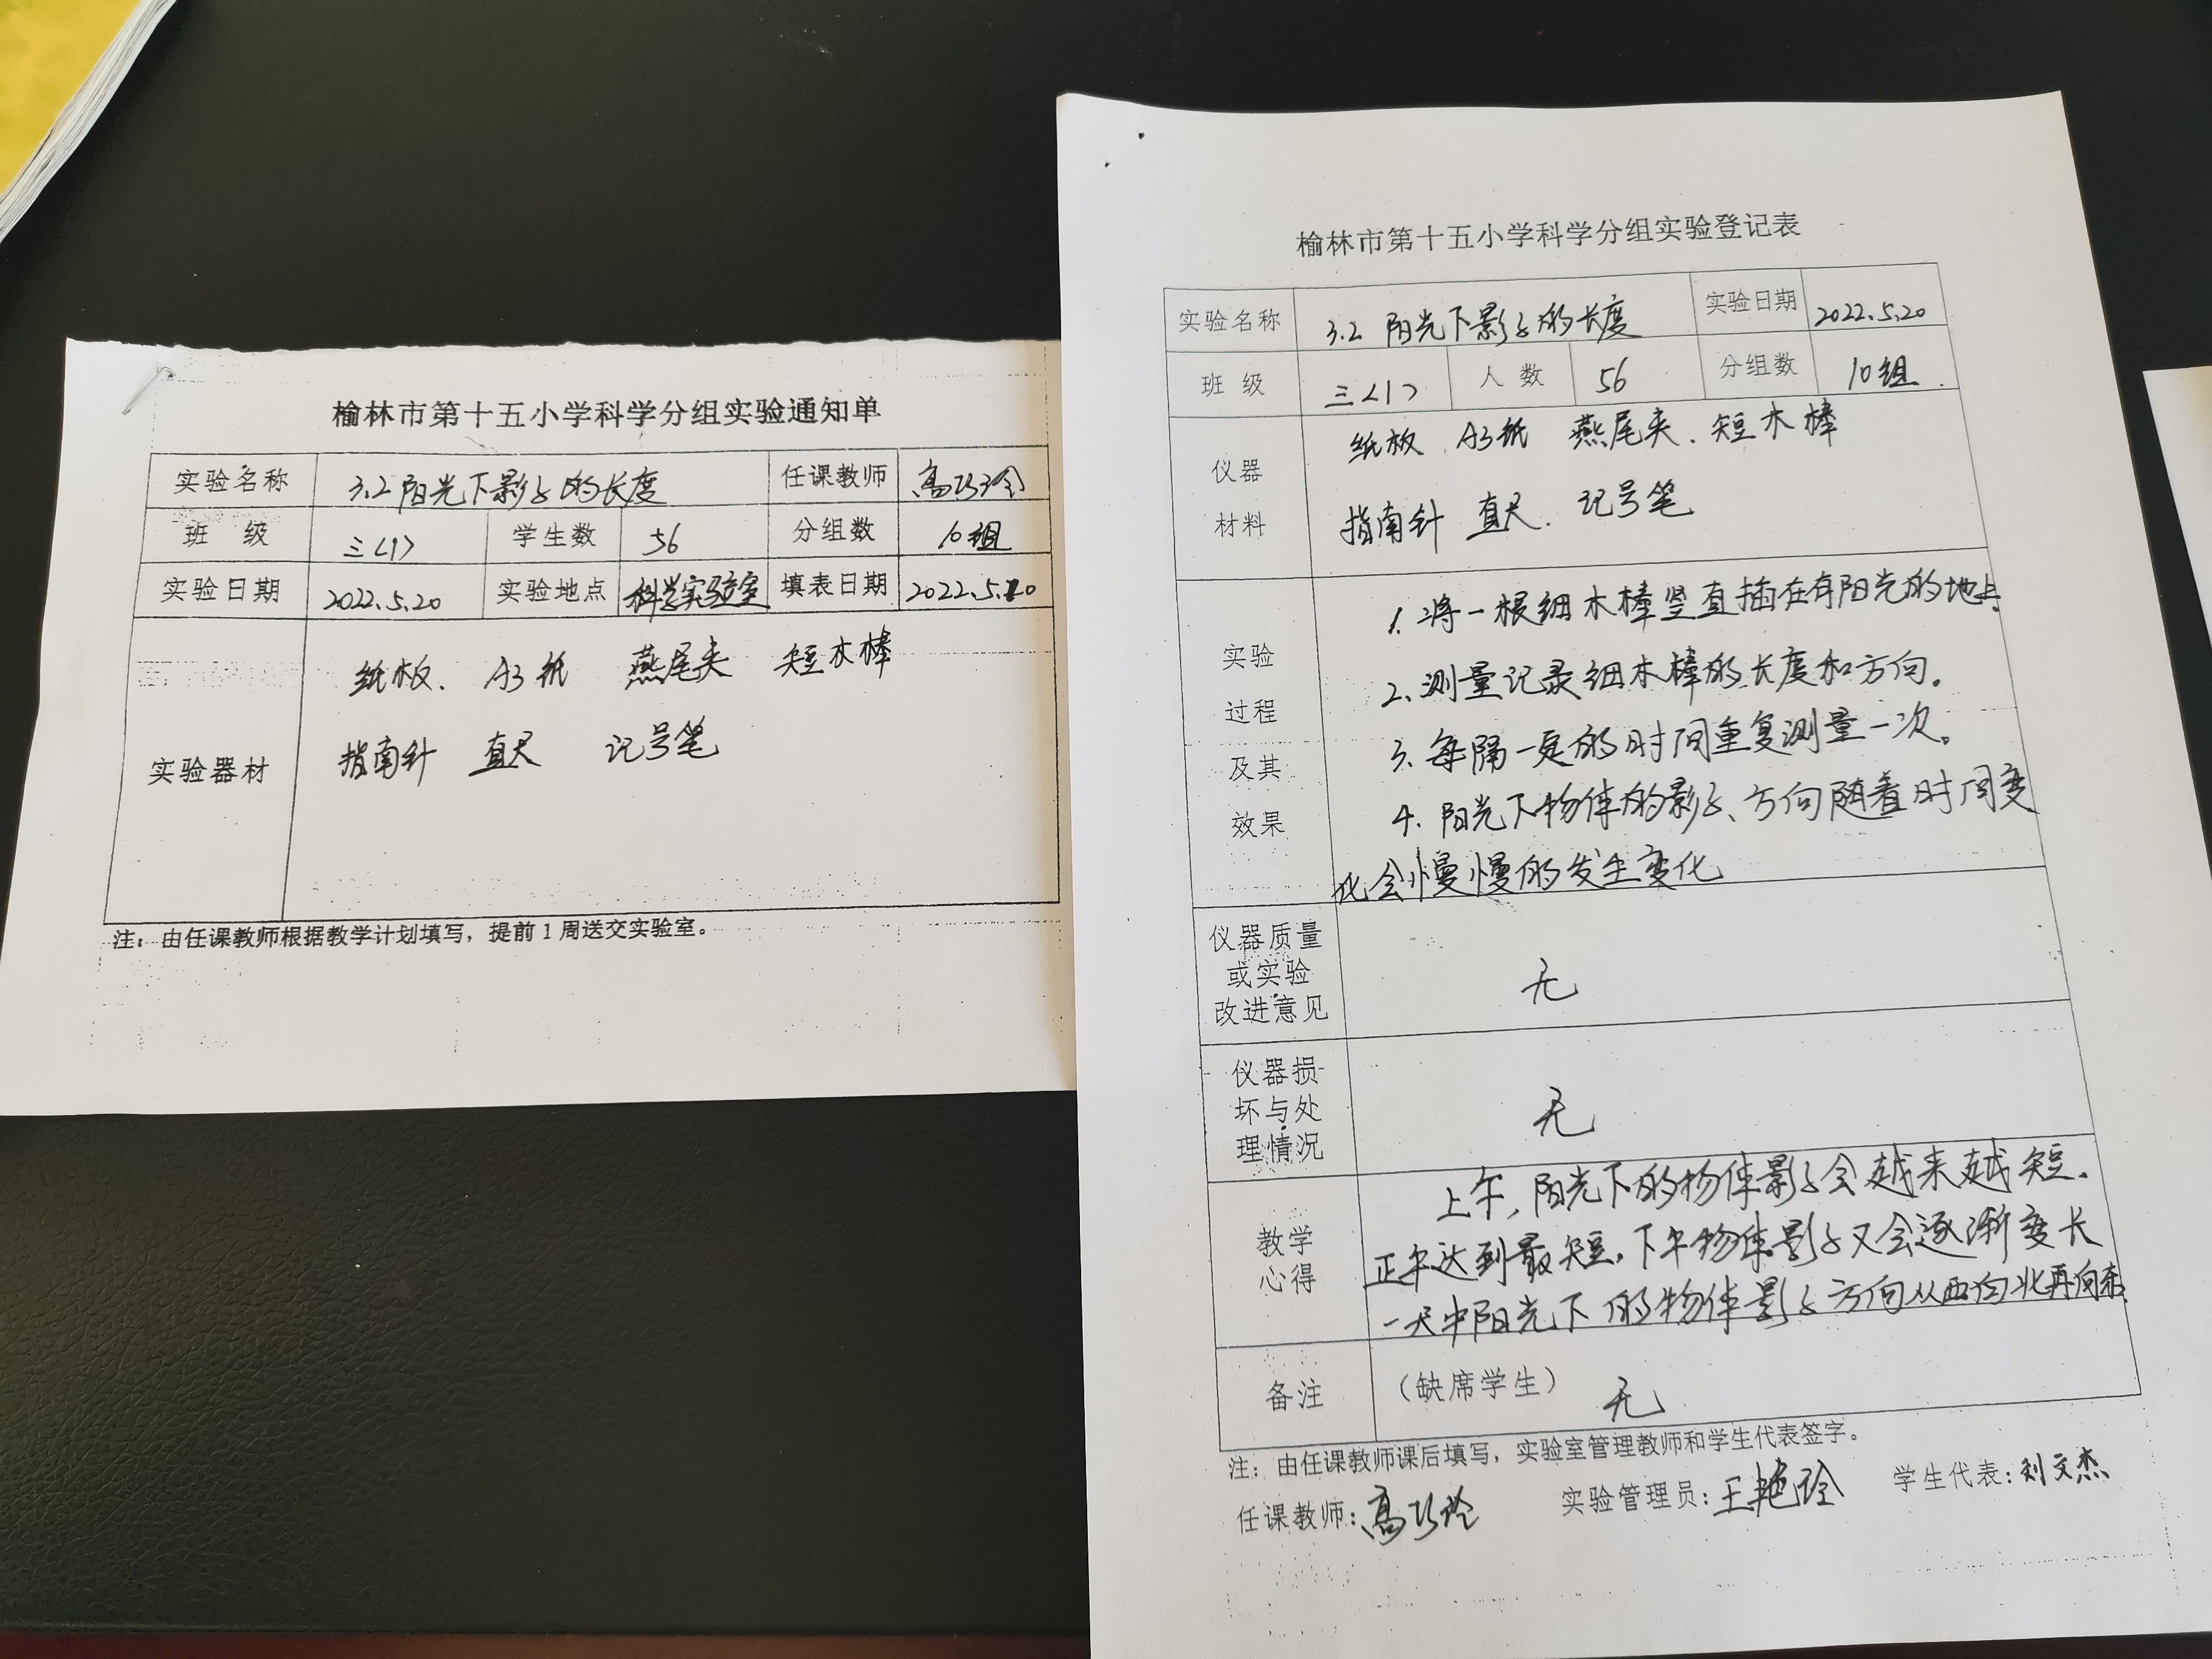 榆林市第十五小学科学分组实验通知单
实验名称 3.2 阳光下影子的长度 任课教师 高巧玲
班 级 三〈1〉 学生数 56 分组数 10组
实验日期 2022.5.20 实验地点 科学实验室 填表日期 2022.5.20
实验器材
纸板、A3纸 燕尾夹 短木棒
指南针 直尺 记号笔
注：由任课教师根据教学计划填写，提前1周送交实验室。
榆林市第十五小学科学分组实验登记表
实验名称 3.2 阳光下影子的长度 实验日期 2022.5.20
班 级 三〈1〉 人 数 56 分组数 10组
仪器
材料
纸板 A3纸 燕尾夹、短木棒
指南针 直尺、记号笔
实验
过程
及其
效果
1. 将一根细木棒竖直插在有阳光的地上
2、测量记录细木棒的长度和方向。
3、每隔一定的时间重复测量一次。
4. 阳光下物体的影子、方向随着时间变
化会慢慢的发生变化
仪器质量
或实验
改进意见
无
仪器损
坏与处
理情况
无
教学
心得
上午，阳光下的物体影子会越来越短。
正午达到最短，下午物体影子又会逐渐变长
一天中阳光下的物体影子方向从西向北再向东
备注 （缺席学生） 无
注：由任课教师课后填写，实验室管理教师和学生代表签字。
任课教师：高巧玲 实验管理员：王艳玲 学生代表：刘文杰